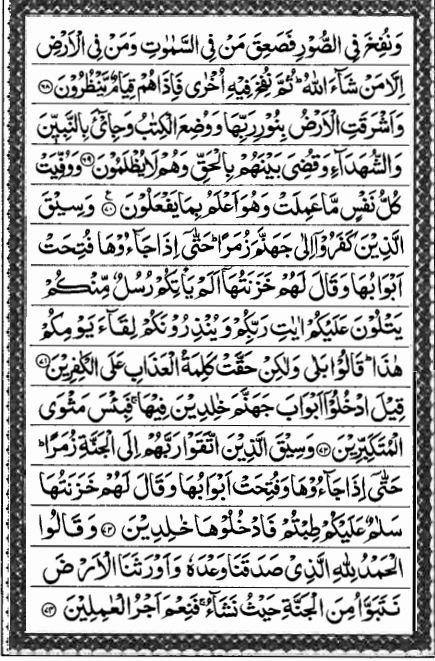 وَنُفِخَ فِي الصُّوْرِ فَصَعِقَ مَنْ فِي السَّمٰوٰتِ وَمَنْ فِي الْاَرْضِ
اِلَّا مَنْ شَآءَ اللّٰهُ ؕ ثُمَّ نُفِخَ فِيْهِ اُخْرٰى فَاِذَا هُمْ قِيَامٌ يَّنْظُرُوْنَ ﴿۶۸﴾
وَاَشْرَقَتِ الْاَرْضُ بِنُوْرِ رَبِّهَا وَوُضِعَ الْكِتٰبُ وَجِائْٓءَ بِالنَّبِيّٖنَ
وَالشُّهَدَآءِ وَقُضِيَ بَيْنَهُمْ بِالْحَقِّ وَهُمْ لَا يُظْلَمُوْنَ ﴿۶۹﴾ وَوُفِّيَتْ
كُلُّ نَفْسٍ مَّا عَمِلَتْ وَهُوَ اَعْلَمُ بِمَا يَفْعَلُوْنَ ﴿۷۰﴾ ع وَسِيْقَ
الَّذِيْنَ كَفَرُوْۤا اِلٰى جَهَنَّمَ زُمَرًا ؕ حَتّٰۤى اِذَا جَآءُوْهَا فُتِحَتْ
اَبْوَابُهَا وَقَالَ لَهُمْ خَزَنَتُهَاۤ اَلَمْ يَاْتِكُمْ رُسُلٌ مِّنْكُمْ
يَتْلُوْنَ عَلَيْكُمْ اٰيٰتِ رَبِّكُمْ وَيُنْذِرُوْنَكُمْ لِقَآءَ يَوْمِكُمْ
هٰذَا ؕ قَالُوْا بَلٰى وَلٰكِنْ حَقَّتْ كَلِمَةُ الْعَذَابِ عَلَى الْكٰفِرِيْنَ ﴿۷۱﴾
قِيْلَ ادْخُلُوْۤا اَبْوَابَ جَهَنَّمَ خٰلِدِيْنَ فِيْهَا ۚ فَبِئْسَ مَثْوَى
الْمُتَكَبِّرِيْنَ ﴿۷۲﴾ وَسِيْقَ الَّذِيْنَ اتَّقَوْا رَبَّهُمْ اِلَى الْجَنَّةِ زُمَرًا ؕ
حَتّٰۤى اِذَا جَآءُوْهَا وَفُتِحَتْ اَبْوَابُهَا وَقَالَ لَهُمْ خَزَنَتُهَا
سَلٰمٌ عَلَيْكُمْ طِبْتُمْ فَادْخُلُوْهَا خٰلِدِيْنَ ﴿۷۳﴾ وَقَالُوا
الْحَمْدُ لِلّٰهِ الَّذِيْ صَدَقَنَا وَعْدَهٗ وَاَوْرَثَنَا الْاَرْضَ
نَتَبَوَّاُ مِنَ الْجَنَّةِ حَيْثُ نَشَآءُ ۚ فَنِعْمَ اَجْرُ الْعٰمِلِيْنَ ﴿۷۴﴾